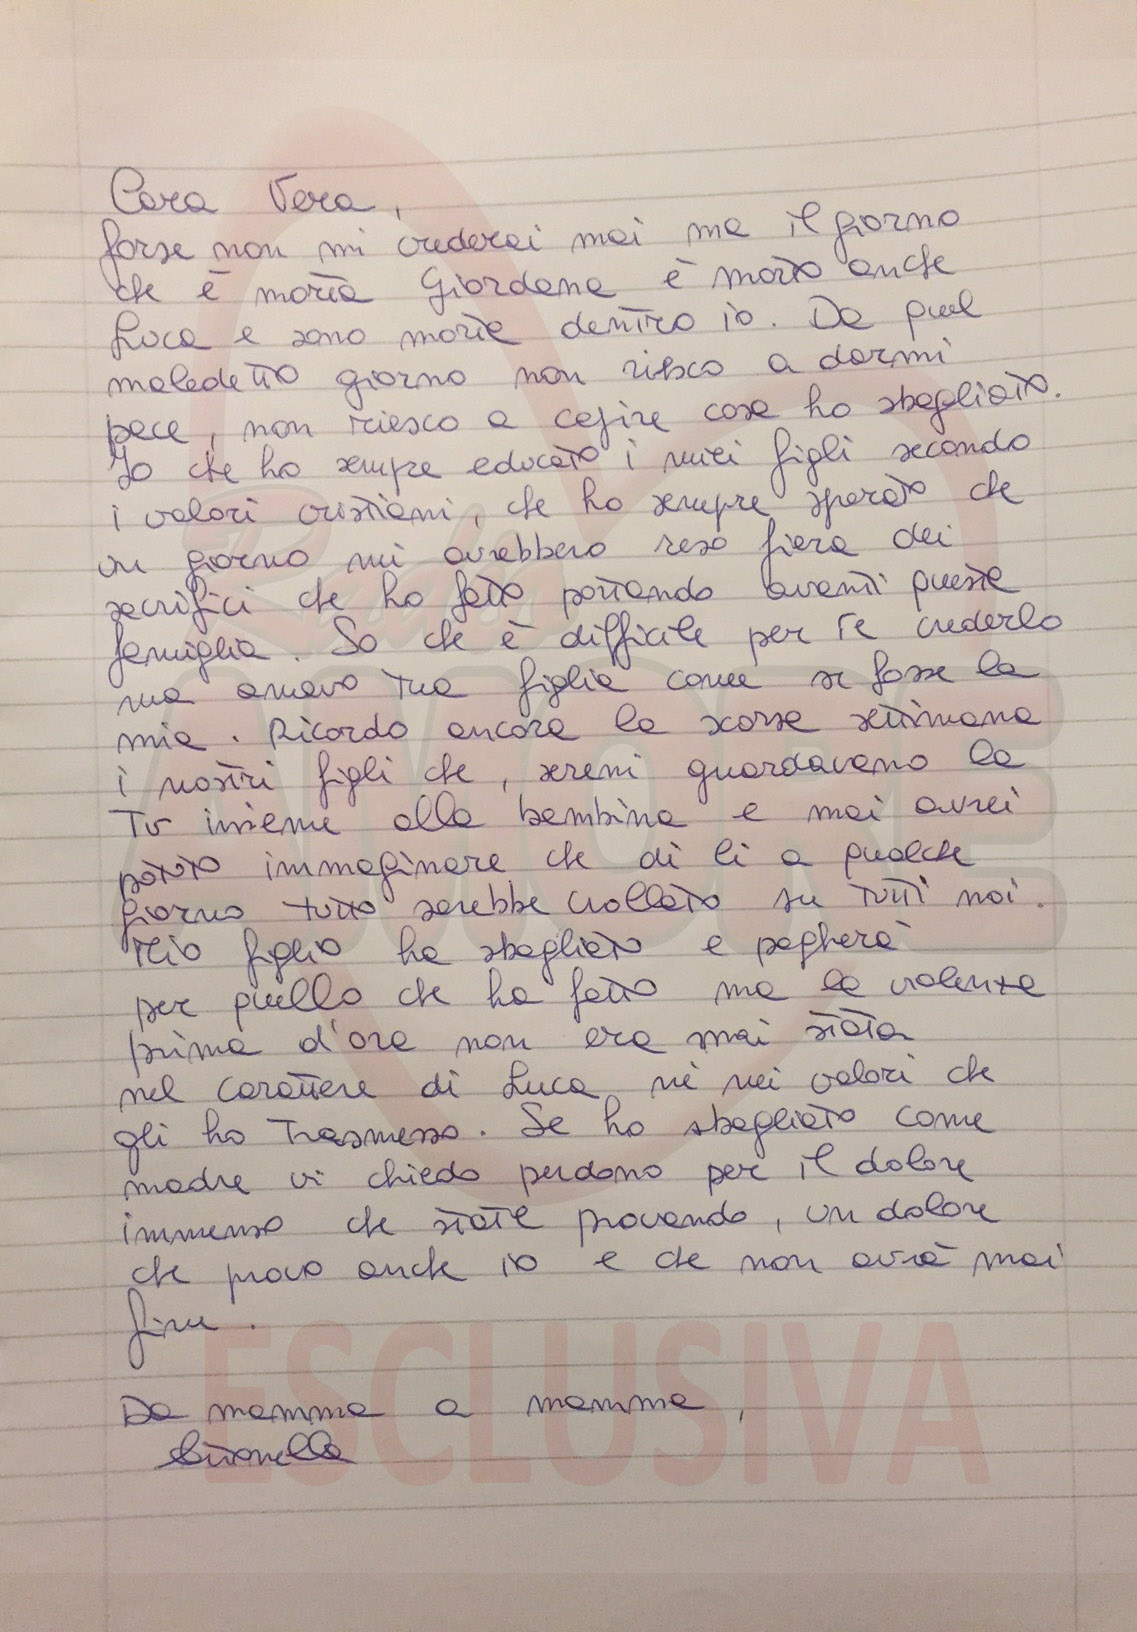 Cara Vera,
forse non mi crederai mai ma il giorno
che è morta Giordana è morto anche
Luca e sono morta dentro io. Da quel
maledetto giorno non riesco a darmi
pace, non riesco a capire cosa ho sbagliato.
Io che ho sempre educato i miei figli secondo
i valori cristiani, che ho sempre sperato che
un giorno mi avrebbero reso fiera dei
sacrifici che ho fatto portando avanti questa
famiglia. So che è difficile per te crederlo
ma amavo tua figlia come se fosse la
mia. Ricordo ancora la scorsa settimana
i nostri figli che, sereni guardavano la
Tv insieme alla bambina e mai avrei
potuto immaginare che di li a qualche
giorno tutto sarebbe crollato su tutti noi.
Mio figlio ha sbagliato e pagherà
per quello che ha fatto ma la violenza
prima d'ora non era mai stata
nel carattere di Luca nè nei valori che
gli ho trasmesso. Se ho sbagliato come
madre vi chiedo perdono per il dolore
immenso che state provando, un dolore
che provo anche io e che non avrà mai
fine.
ESCLUSIVA
Da mamma a mamma,